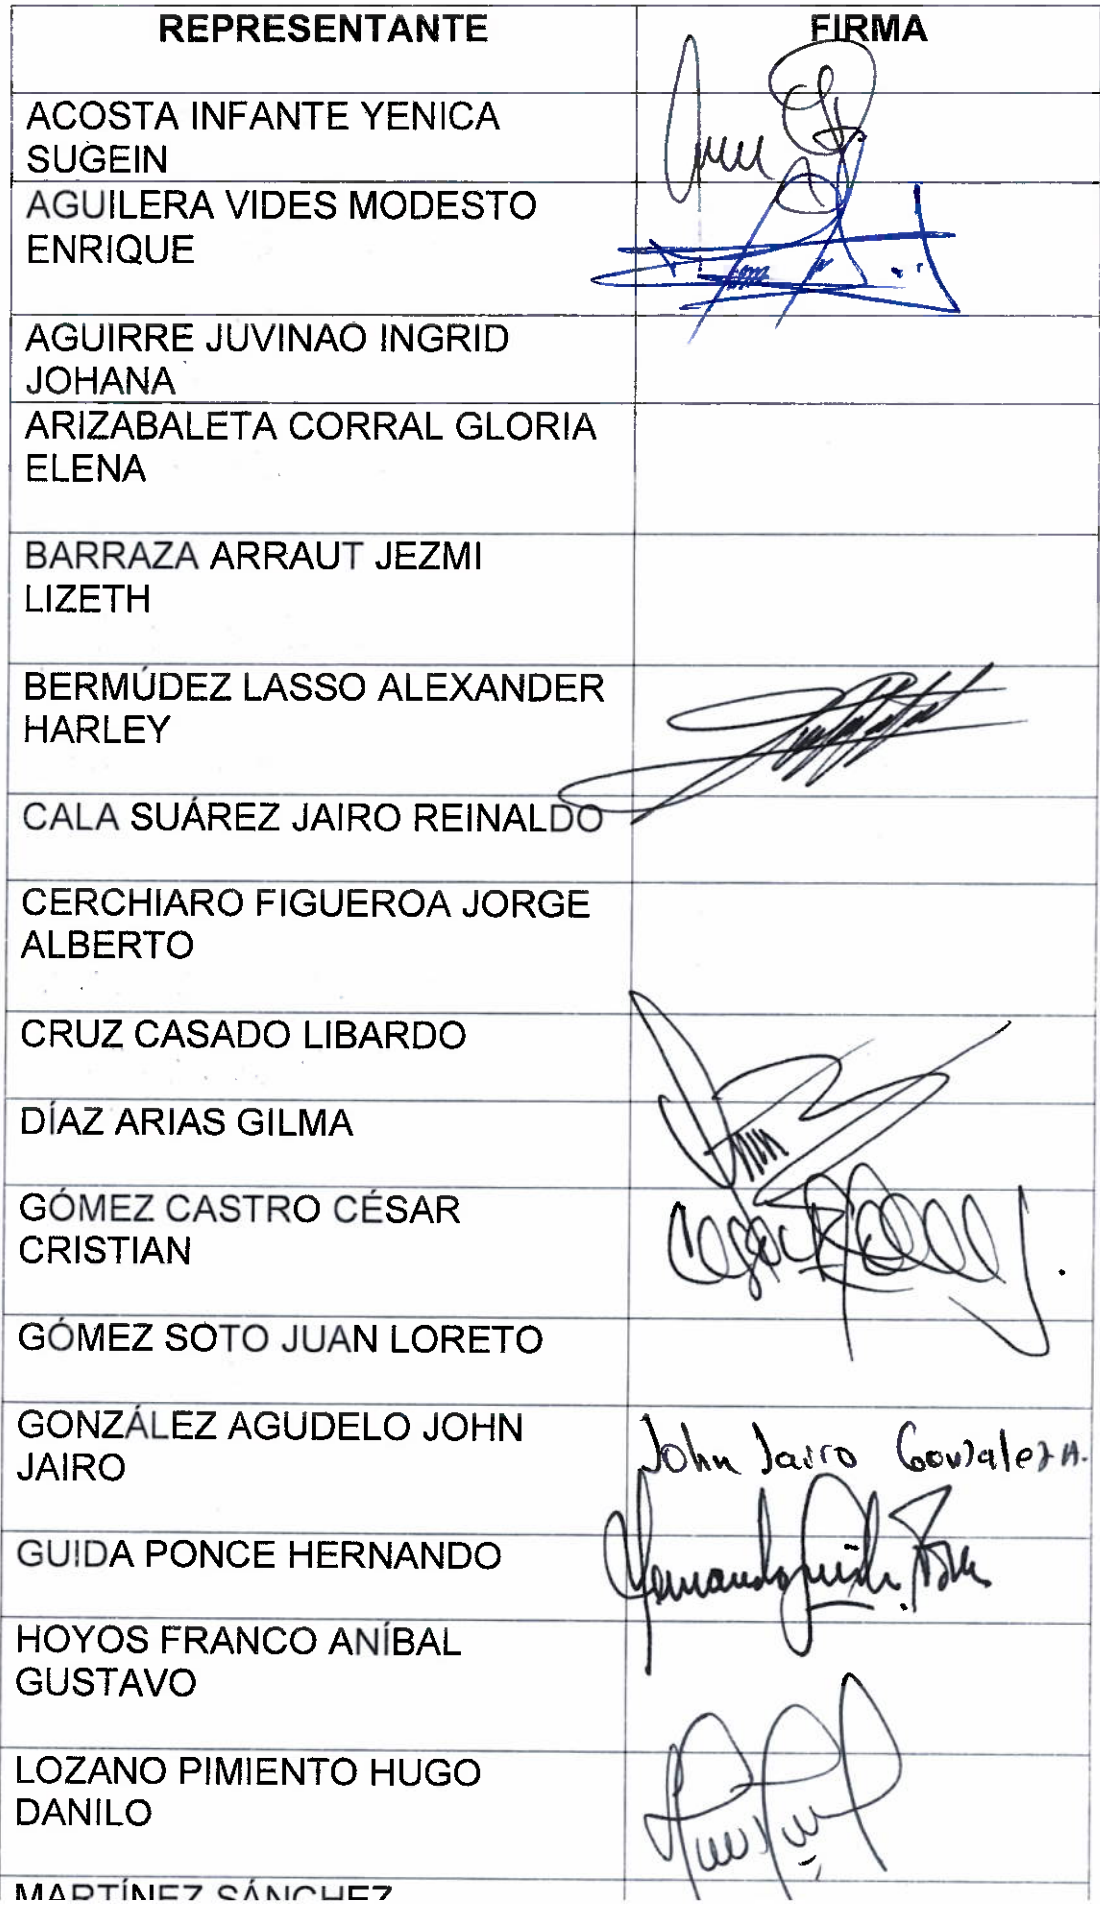 REPRESENTANTE FIRMA
ACOSTA INFANTE YENICA
SUGEIN
AGUILERA VIDES MODESTO
ENRIQUE
AGUIRRE JUVINAO INGRID
JOHANA
ARIZABALETA CORRAL GLORIA
ELENA
BARRAZA ARRAUT JEZMI
LIZETH
BERMÚDEZ LASSO ALEXANDER
HARLEY
CALA SUÁREZ JAIRO REINALDO
CERCHIARO FIGUEROA JORGE
ALBERTO
CRUZ CASADO LIBARDO
DÍAZ ARIAS GILMA
GÓMEZ CASTRO CÉSAR
CRISTIAN
GÓMEZ SOTO JUAN LORETO
GONZÁLEZ AGUDELO JOHN
JAIRO
John Jairo González A.
GUIDA PONCE HERNANDO
Hernando Guida Ponce
HOYOS FRANCO ANÍBAL
GUSTAVO
LOZANO PIMIENTO HUGO
DANILO
MARTÍNEZ SÁNCHEZ